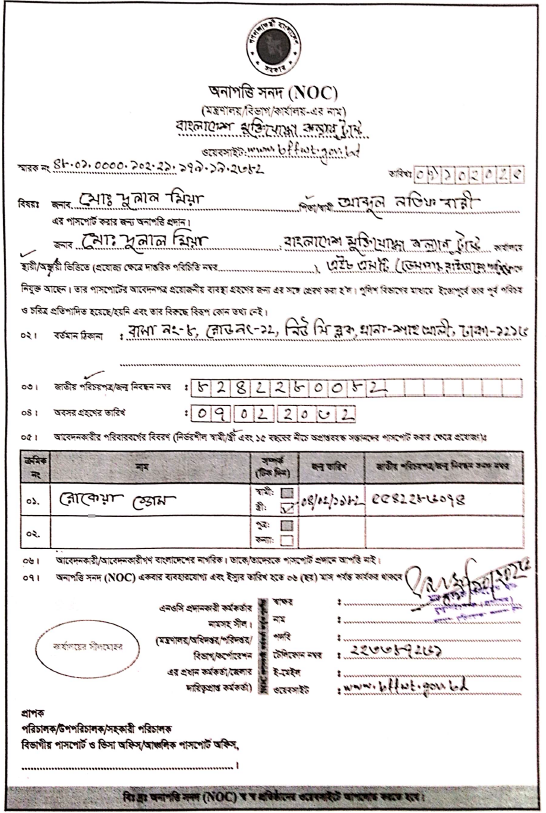 গণপ্রজাতন্ত্রী বাংলাদেশ
সরকার
অনাপত্তি সনদ (NOC)
(মন্ত্রণালয়/বিভাগ/কার্যালয়-এর নাম)
বাংলাদেশ মুক্তিযোদ্ধা কল্যাণ ট্রাস্ট
ওয়েবসাইট: www.bffwt.gov.bd
স্মারক নং
তারিখঃ
বিষয়ঃ জনাব মোঃ দুলাল মিয়া পিতা/স্বামী আব্দুল লতিফ বারী
এর পাসপোর্ট করার জন্য অনাপত্তি প্রদান।
জনাব মোঃ দুলাল মিয়া , বাংলাদেশ মুক্তিযোদ্ধা কল্যাণ ট্রাস্ট কার্যালয়ে
স্থায়ী/অস্থায়ী ভিত্তিতে (প্রযোজ্য ক্ষেত্রে দাপ্তরিক পরিচিতি নম্বর
নিযুক্ত আছেন। তার পাসপোর্টের আবেদনপত্র প্রয়োজনীয় ব্যবস্থা গ্রহণের জন্য এর সঙ্গে প্রেরণ করা হ'ল। পুলিশ বিভাগের মাধ্যমে ইতোপূর্বে তার পূর্ব পরিচয়
ও চরিত্র প্রতিপাদিত হয়েছে/হয়নি এবং তার বিরুদ্ধে বিরূপ কোন তথ্য নেই।
০২। বর্তমান ঠিকানা : বাসা নং-৮, রোড নং-২২, নিউ সি ব্লক, থানা-শাহ আলী, ঢাকা-১২১৬
০৩। জাতীয় পরিচয়পত্র/জন্ম নিবন্ধন নম্বর : ৮ 2 8 2 2 ৮ 0 0 ৮ 2
০৪। অবসর গ্রহণের তারিখ :
০৫। আবেদনকারীর পরিবারবর্গের বিবরণ (নির্ভরশীল স্বামী/স্ত্রী এবং ১৫ বছরের নীচে অপ্রাপ্তবয়স্ক সন্তানদের পাসপোর্ট করার ক্ষেত্রে প্রযোজ্য)ঃ
ক্রমিক নং নাম সম্পর্ক (টিক দিন) জন্ম তারিখ জাতীয় পরিচয়পত্র/জন্ম নিবন্ধন সনদ নম্বর
০১. রোকেয়া বেগম স্বামী: স্ত্রী:
০২. পুত্র: কন্যা:
০৬। আবেদনকারী/আবেদনকারীগণ বাংলাদেশের নাগরিক। তাকে/তাদেরকে পাসপোর্ট প্রদানে আপত্তি নাই।
০৭। অনাপত্তি সনদ (NOC) একবার ব্যবহারযোগ্য এবং ইস্যুর তারিখ হতে ০৬ (ছয়) মাস পর্যন্ত কার্যকর থাকবে
এনওসি প্রদানকারী কর্মকর্তার স্বাক্ষর :
নামসহ সীল। নাম :
(মন্ত্রণালয়/অধিদপ্তর/পরিদপ্তর/ পদবি :
বিভাগ/কর্পোরেশন টেলিফোন নম্বর :
এর প্রধান কর্মকর্তা/জেলার ই-মেইল :
দায়িত্বপ্রাপ্ত কর্মকর্তা) ওয়েবসাইট : www.bffwt.gov.bd
কার্যালয়ের সীলমোহর
প্রাপক
পরিচালক/উপপরিচালক/সহকারী পরিচালক
বিভাগীয় পাসপোর্ট ও ভিসা অফিস/আঞ্চলিক পাসপোর্ট অফিস,
বিঃ দ্রঃ অনাপত্তি সনদ (NOC) স্ব স্ব প্রতিষ্ঠানের ওয়েবসাইটে আপলোড করতে হবে।